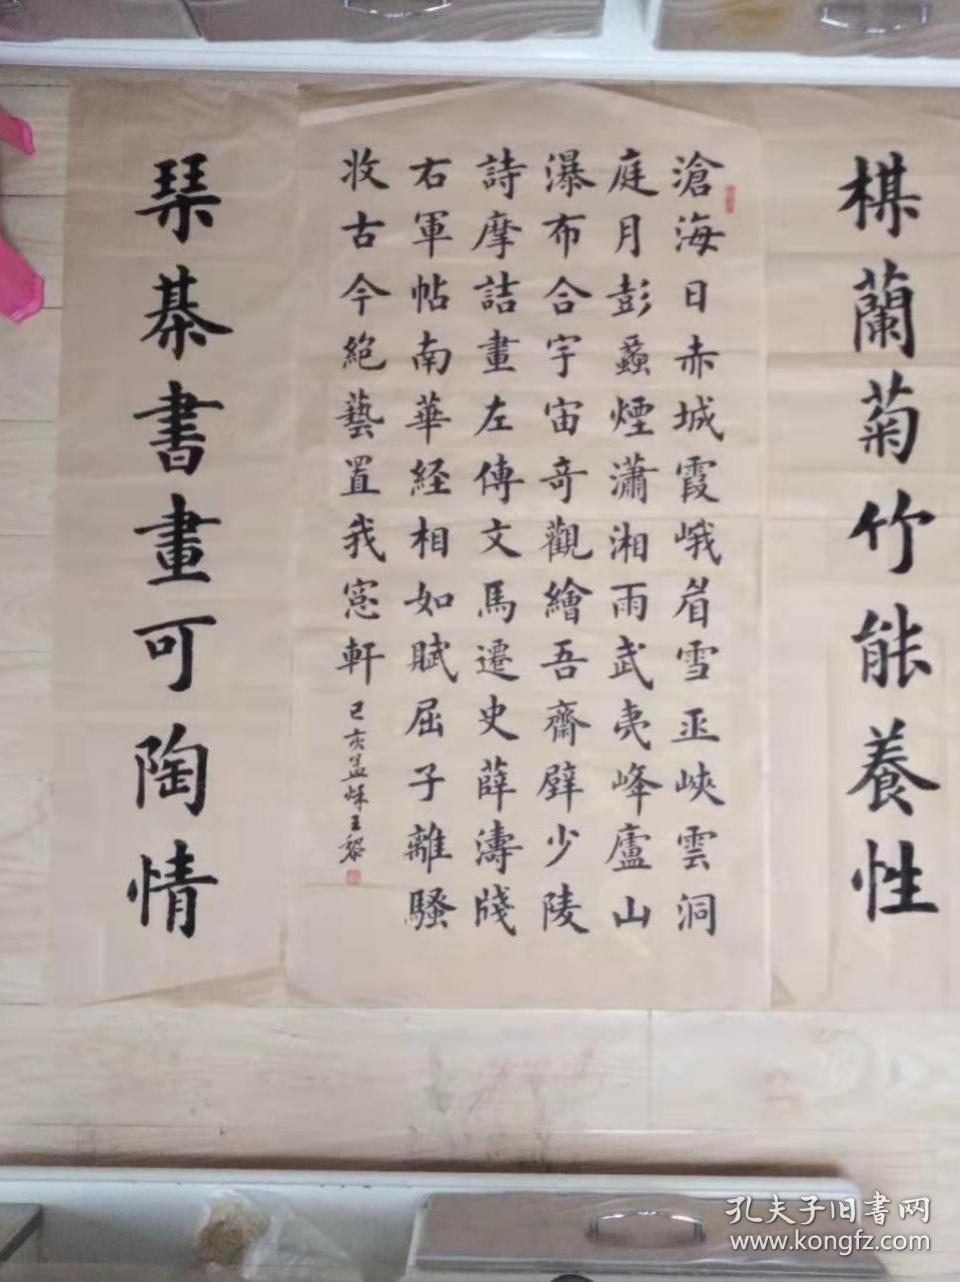 楳蘭菊竹能養性
滄海日赤城霞峨眉雪巫峽雲洞
庭月彭蠡煙瀟湘雨武夷峰廬山
瀑布合宇宙奇觀繪吾齋壁少陵
詩摩詰畫左傳文馬遷史薛濤牋
右軍帖南華経相如賦屈子離騷
收古今絕藝置我窓軒
己亥孟秌王黎
琹棊書畫可陶情
孔夫子旧书网
www.kongfz.com